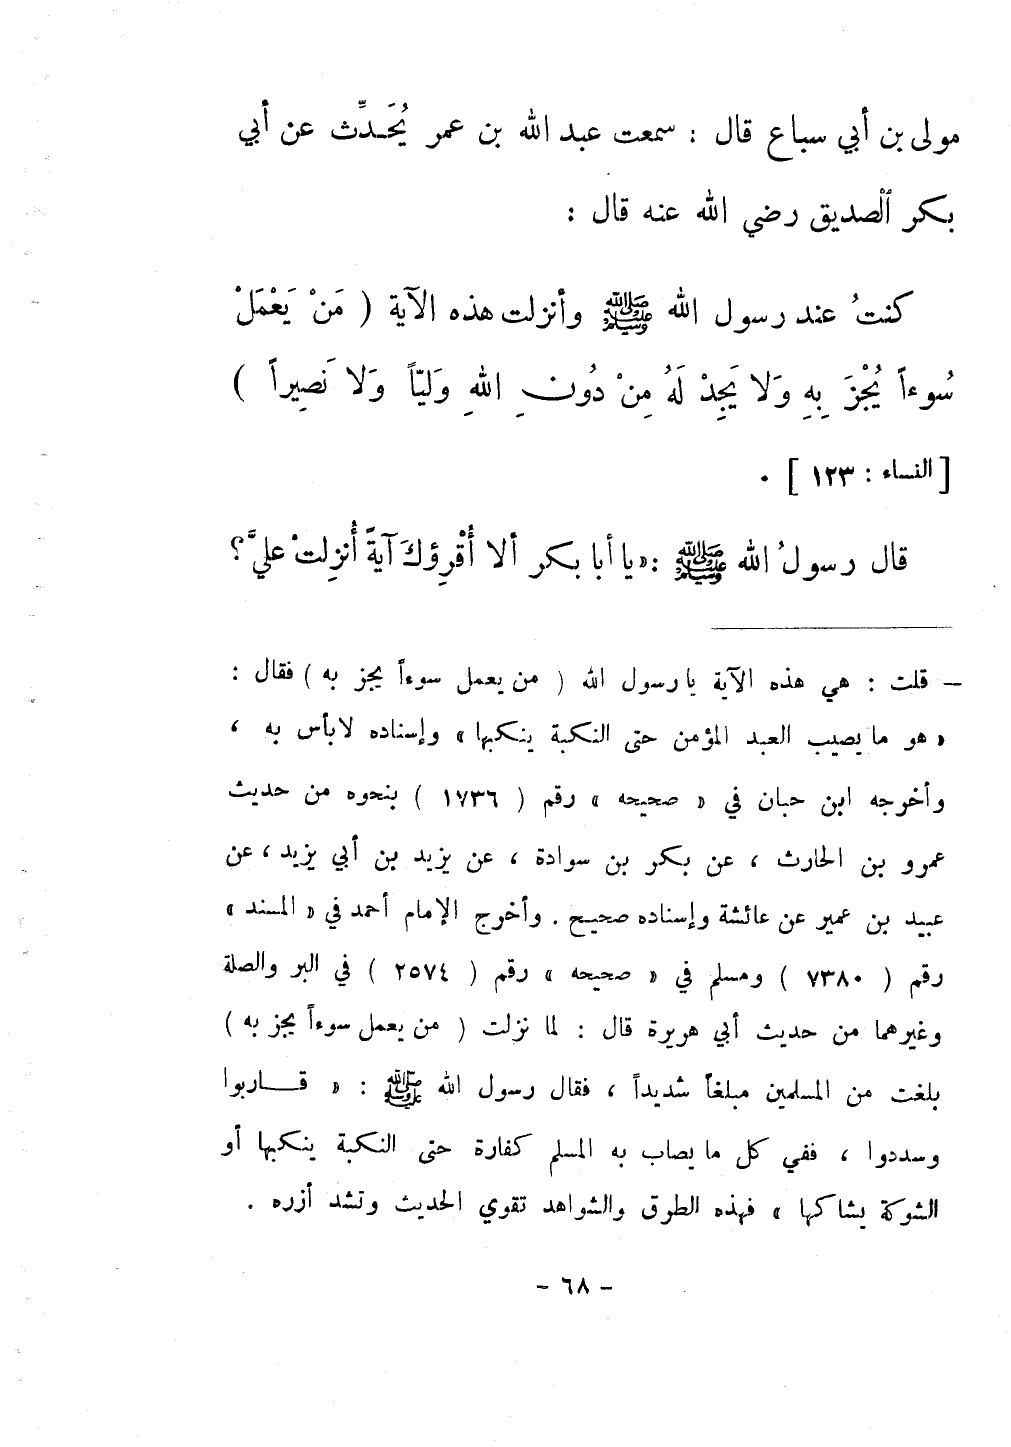 مولى بن أبي سباع قال : سمعت عبد الله بن عمر يُحَـدِّث عن أبي
بكر الصديق رضي الله عنه قال :
كنتُ عند رسول الله ﷺ وأنزلت هذه الآية ( مَنْ يَعْمَلْ
سُوءاً يُجْزَ بِهِ وَلا يَجِدْ لَهُ مِنْ دُونِ اللهِ وَليّاً وَلا نَصِيراً )
[ النساء : ١٢٣ ] .
قال رسولُ الله ﷺ : « يا أبا بكر ألا أُقْرِؤكَ آيةً أُنزِلتْ عليَّ ؟
– قلت : هي هذه الآية يا رسول الله ( من يعمل سوءاً يجز به ) فقال :
« هو ما يصيب العبد المؤمن حتى النكبة ينكبها » وإسناده لا بأس به ،
وأخرجه ابن حبان في « صحيحه » رقم ( ١٧٣٦ ) بنحوه من حديث
عمرو بن الحارث ، عن بكر بن سوادة ، عن يزيد بن أبي يزيد ، عن
عبيد بن عمير عن عائشة وإسناده صحيح . وأخرج الإمام أحمد في « المسند »
رقم ( ٧٣٨٠ ) ومسلم في « صحيحه » رقم ( ٢٥٧٤ ) في البر والصلة
وغيرهما من حديث أبي هريرة قال : لما نزلت ( من يعمل سوءاً يجز به )
بلغت من المسلمين مبلغاً شديداً ، فقال رسول الله ﷺ : « قـــاربوا
وسددوا ، ففي كل ما يصاب به المسلم كفارة حتى النكبة ينكبها أو
الشوكة يشاكها » فهذه الطرق والشواهد تقوي الحديث وتشد أزره .
- ٦٨ -